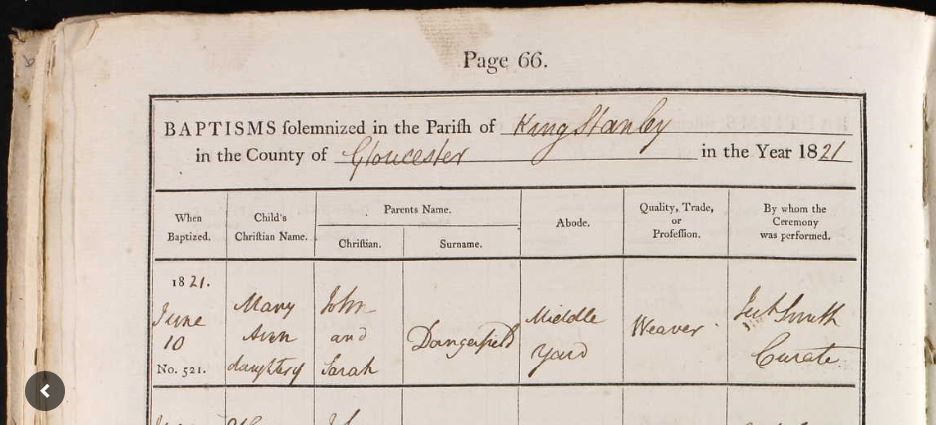 Page 66.
BAPTISMS solemnized in the Parish of King Stanley
in the County of Gloucester in the Year 1821
When Baptized.
Child's Christian Name.
Parents Name.
Christian.
Surname.
Abode.
Quality, Trade, or Profession.
By whom the Ceremony was performed.
1821.
June
10
No. 521.
Mary
Ann
daughter of
John
and
Sarah
Dangerfield
Middle
Yard
Weaver
Smith
Curate